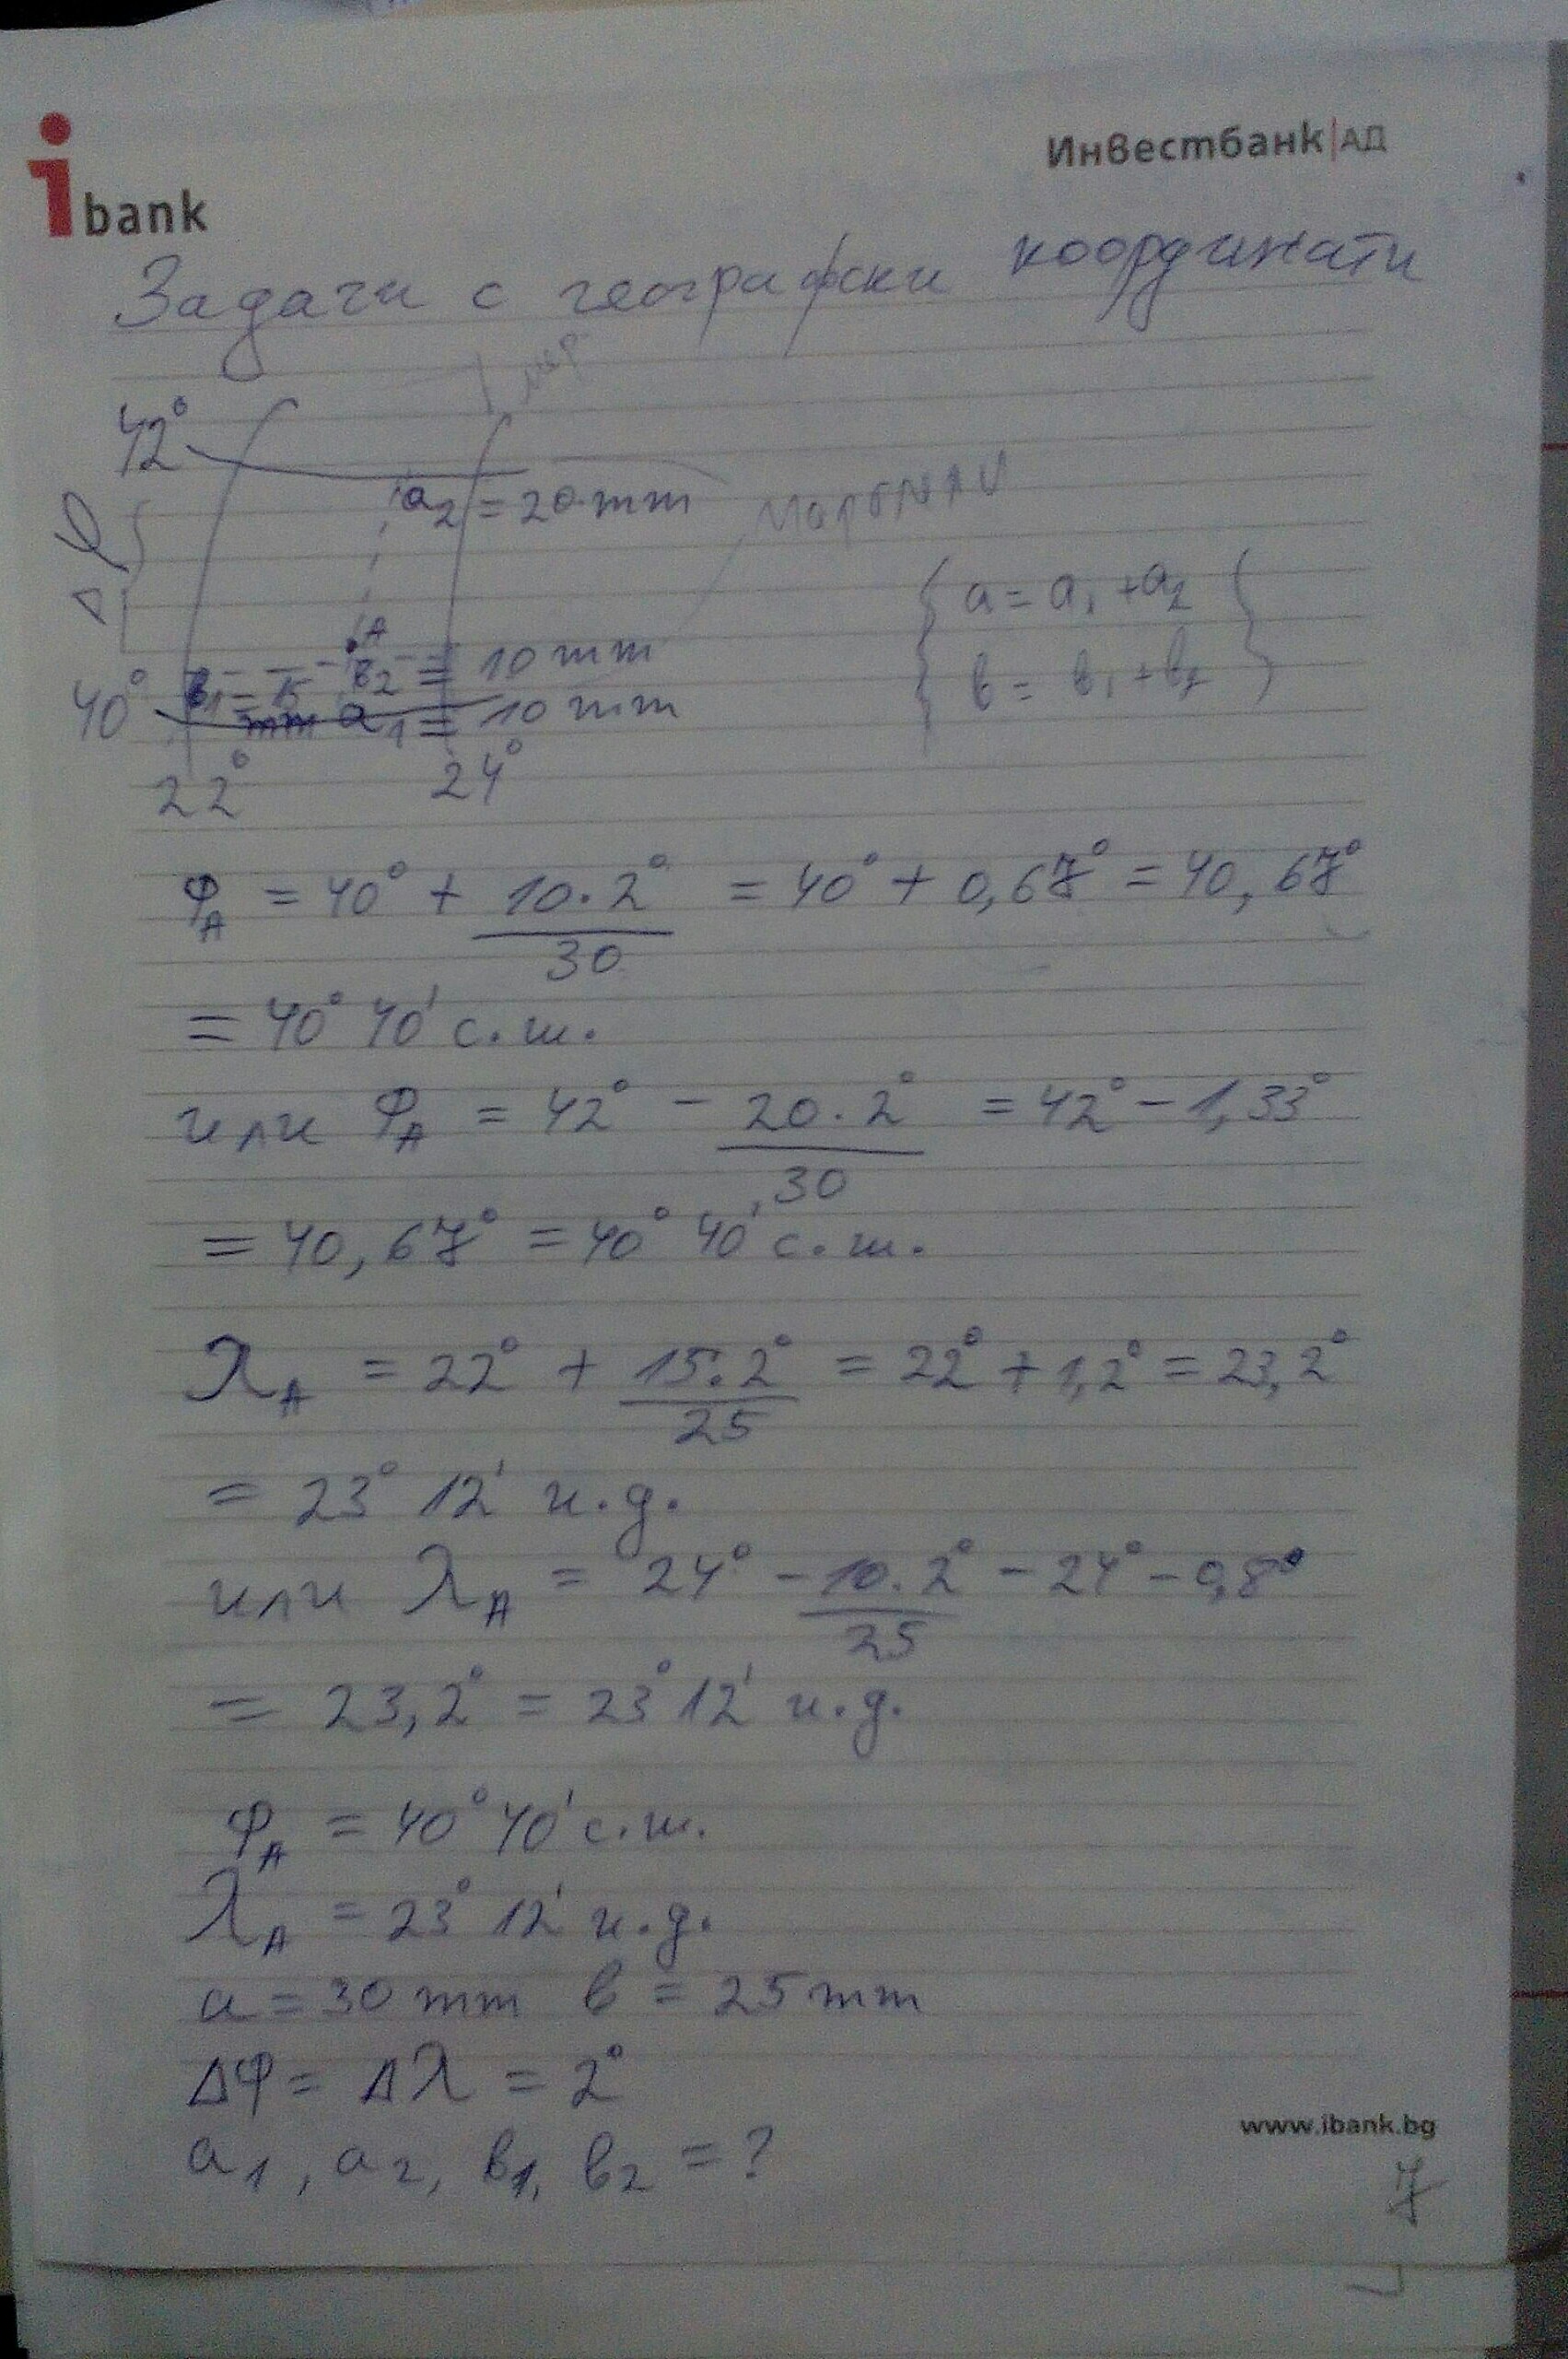 ibank
Инвестбанк|АД
Задачи с географски координати
мер
42°
a₂ = 20 mm
Δφ
a = a₁ + a₂
A
в₁ = 15 mm в₂ = 10 mm
в = в₁ + в₂
40°
a₁ = 10 mm
22° 24°
φ_A = 40° + 10.2°/30 = 40° + 0,67° = 40,67°
= 40° 40' с.ш.
или φ_A = 42° - 20.2°/30 = 42° - 1,33°
= 40,67° = 40° 40' с.ш.
λ_A = 22° + 15.2°/25 = 22° + 1,2° = 23,2°
= 23° 12' и.д.
или λ_A = 24° - 10.2°/25 - 24° - 0,8°
= 23,2° = 23° 12' и.д.
φ_A = 40° 40' с.ш.
λ_A = 23° 12' и.д.
a = 30 mm в = 25 mm
Δφ = Δλ = 2°
a₁, a₂, в₁, в₂ = ?
www.ibank.bg
7